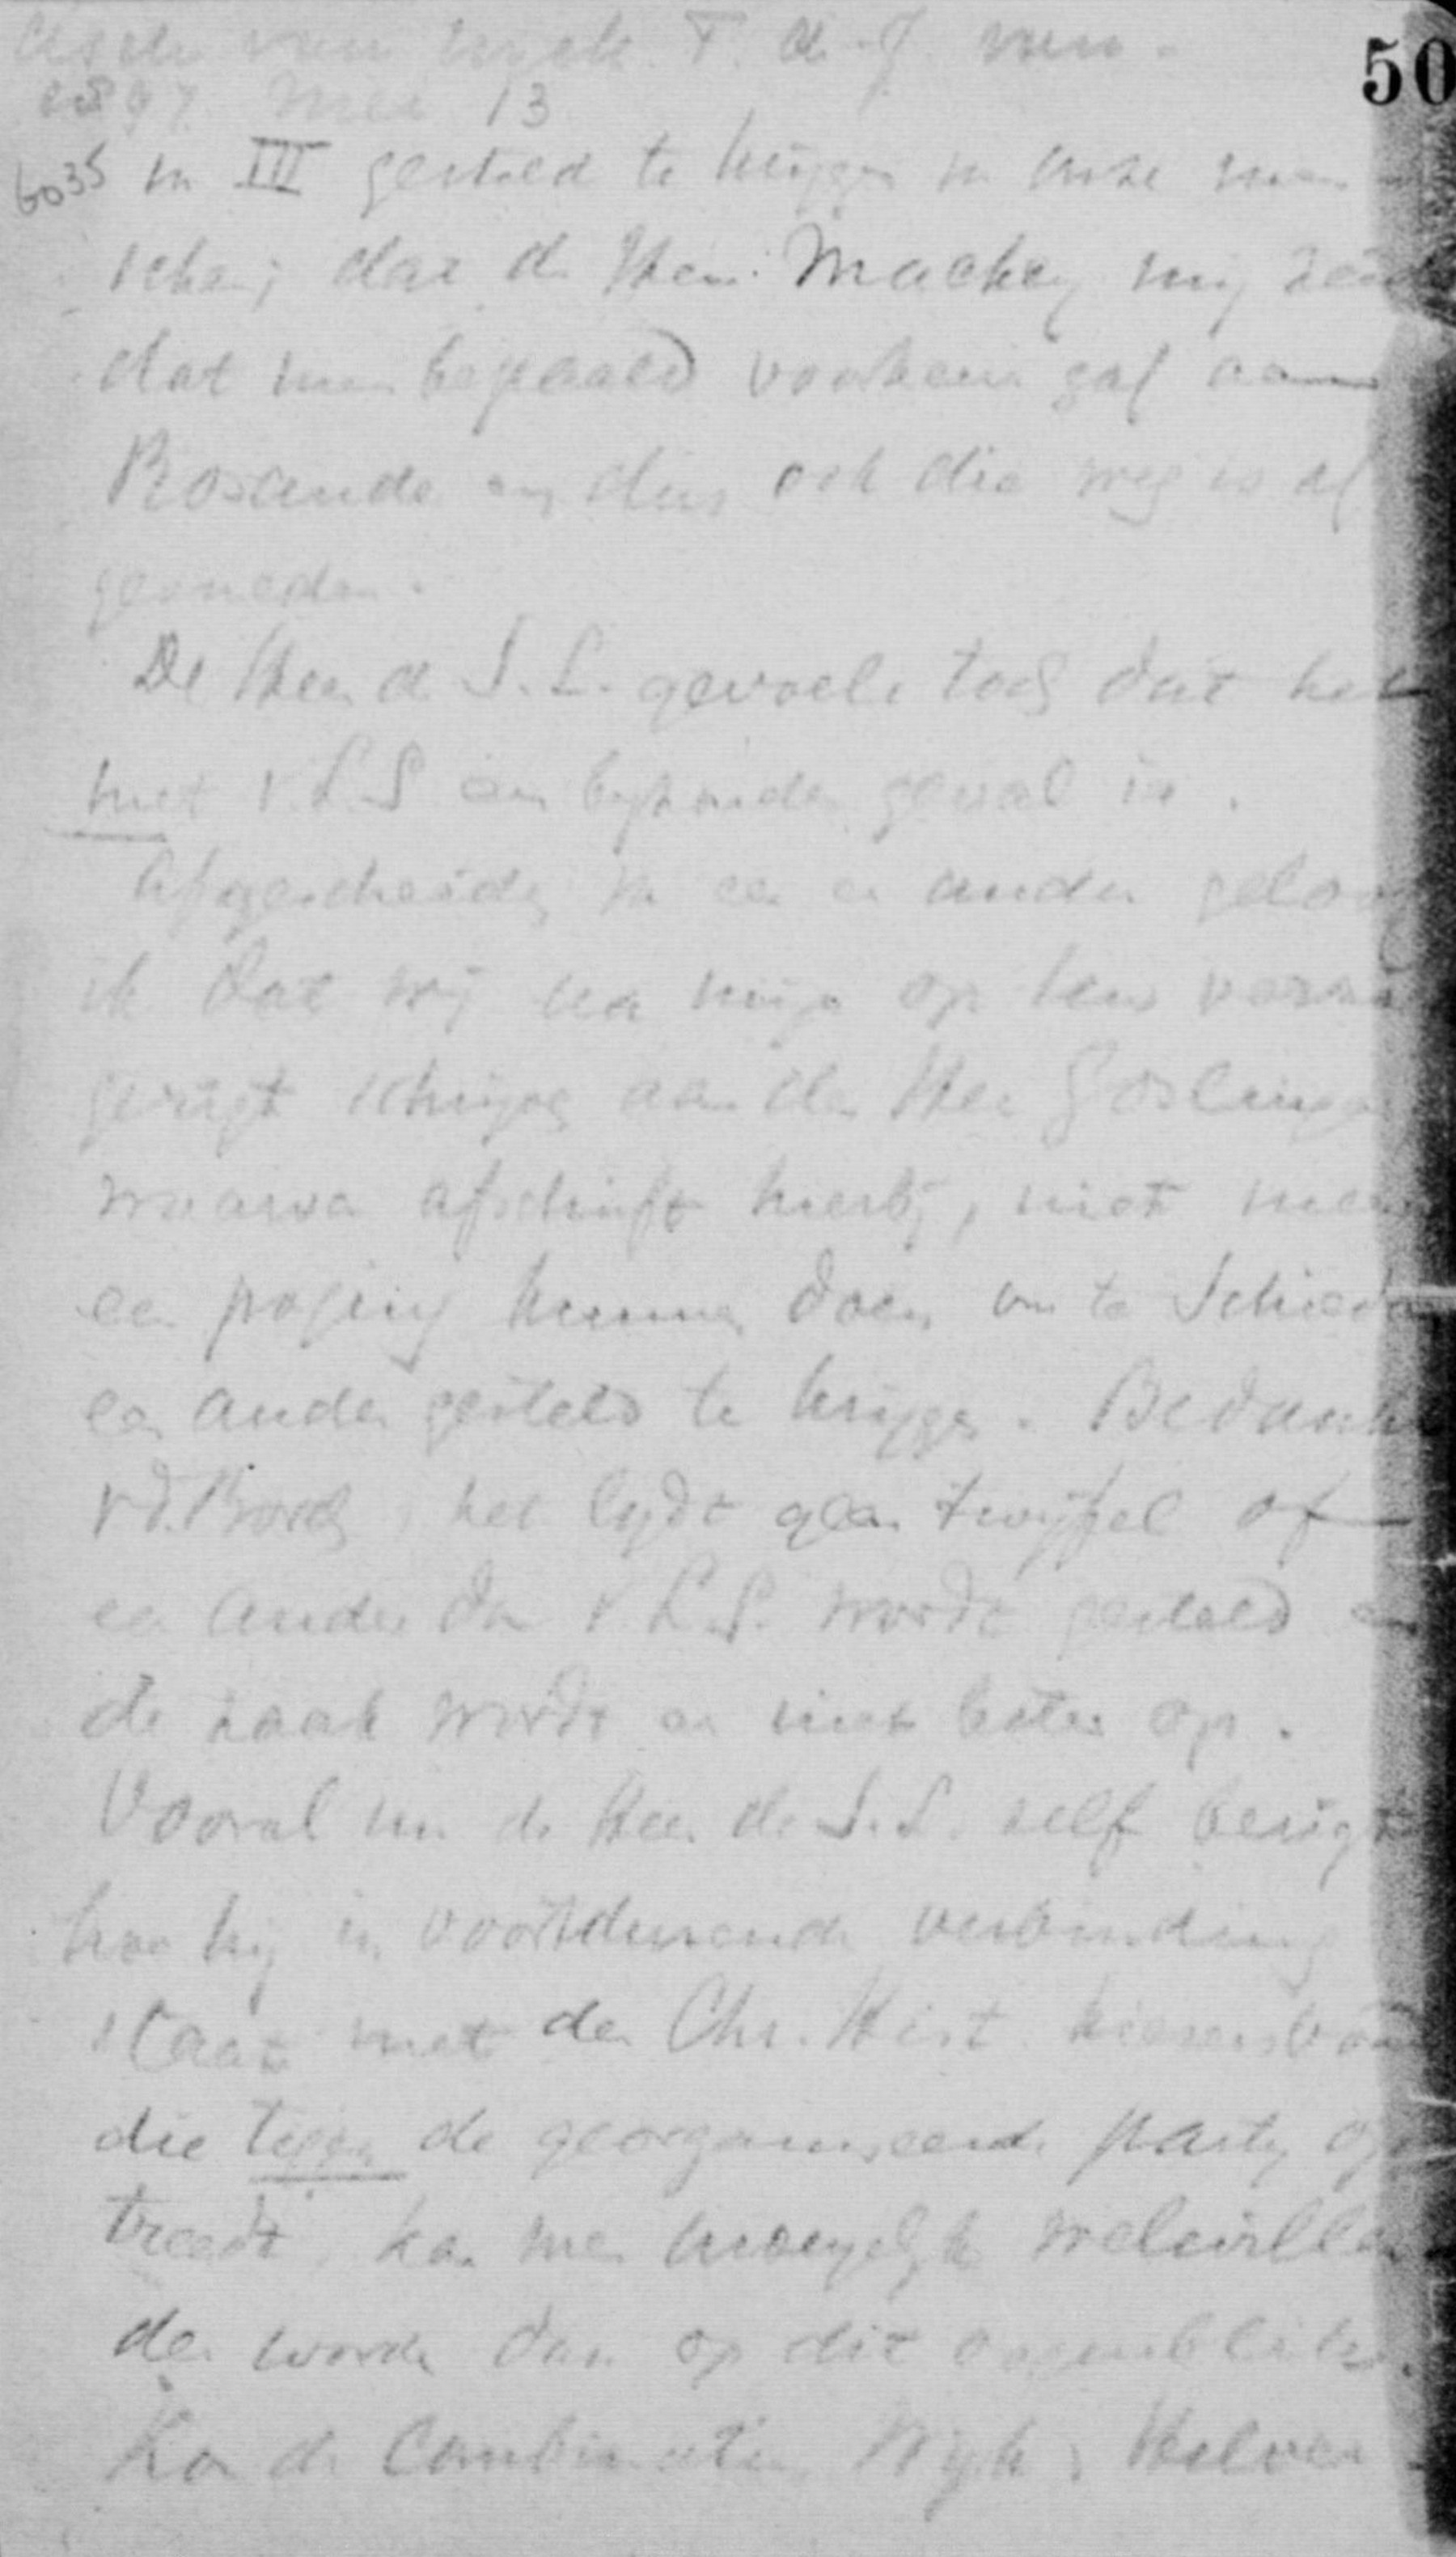 van Wijck T. d. J. van
50
1897 Mei 13
6035 in III gesteld te krijgen in onze
schen; dat de Heer Mackay mij
dat men bepaald voorkeur gaf aan
Rosande en dus ook die weg is af
gesneden.
De Heer d S. L. gevoele toch dat het
met v. L. S een byzonder geval is.
Afgescheiden van een en ander geloof
ik dat wij na mijn op
gerigt schrijven aan den Heer Goslinga
waarvan afschrift hierbij, niet meer
een poging kunnen doen om te Schiedam
een ander gesteld te krijgen. Bedankt
v d. Borch, het lydt geen twijffel of
een ander dan v. L. S. wordt gesteld en
de zaak wordt er niet beter op.
Vooral nu de Heer de S. L. zelf berigt
hoe hij in voortdurende verbinding
staat met den Chr. Hist. kiezersbond
die tegen de georganiseerde party op
treedt, kan men moeyelyk welwillen
der worden dan op dit oogenblik.
Kon de Combinatie Wyck, Helver